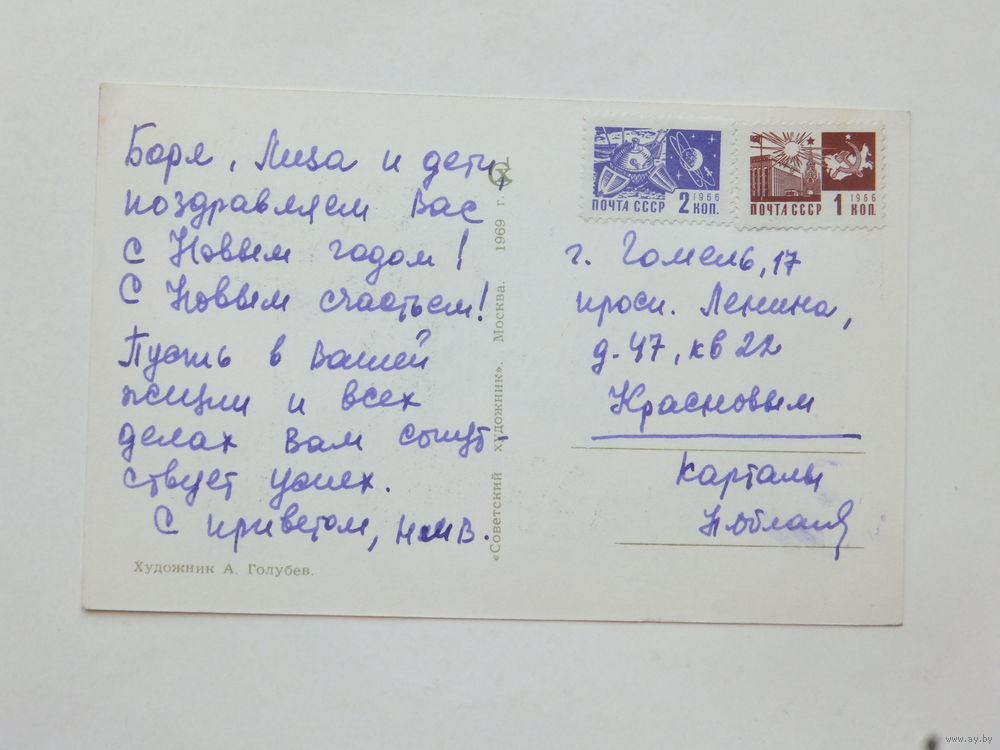 Боря, Лиза и дети,
поздравляем Вас
с Новым годом!
С Новым счастьем!
Пусть в Вашей
жизни и всех
делах Вам сопут-
ствует успех.
С приветом,
Художник А. Голубев.
«Советский художник». Москва. 1969 г.
ПОЧТА СССР 2 КОП. 1966
ПОЧТА СССР 1 КОП. 1966
г. Гомель, 17
просп. Ленина,
д. 47, кв 22
Красновым
Карталы
www.ay.by